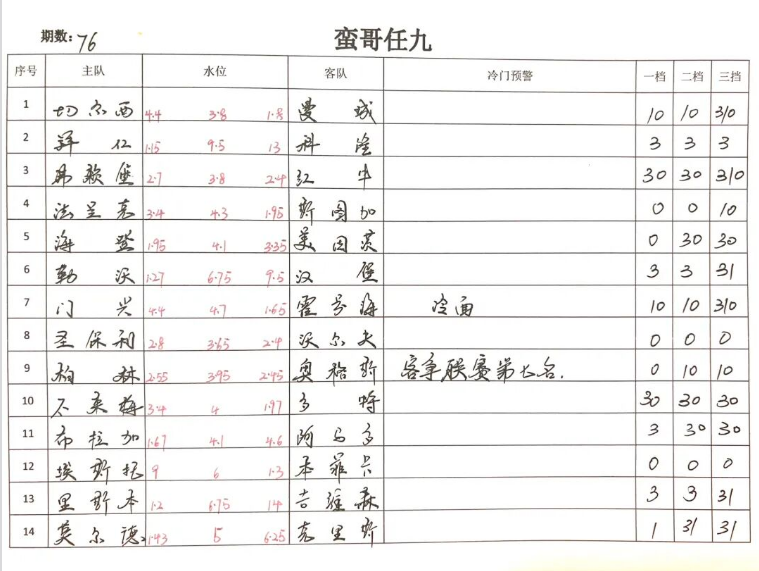 期数: 76 蛮哥任九
序号 主队 水位 客队 冷门预警 一档 二档 三挡
1 切尔西 4.4 3.8 1.8 曼城 10 10 310
2 拜仁 1.15 9.5 13 科隆 3 3 3
3 弗赖堡 2.7 3.8 2.4 红牛 30 30 310
4 法兰克 3.4 4.3 1.95 斯图加 0 0 10
5 海登 1.95 4.1 3.35 美因茨 0 30 30
6 勒沃 1.27 6.75 9.5 汉堡 3 3 31
7 门兴 4.4 4.7 1.65 霍芬海 冷面 10 10 310
8 圣保利 2.8 3.65 2.4 沃尔夫 0 0 0
9 柏林 2.55 3.95 2.45 奥格斯 客争联赛第七名. 0 10 10
10 不来梅 3.4 4 1.97 多特 30 30 30
11 布拉加 1.67 4.1 4.6 阿马多 3 30 30
12 埃斯托 9 6 1.3 本菲卡 0 0 0
13 里斯本 1.2 6.75 14 吉维森 3 3 31
14 莫尔德 1.43 5 6.25 克里斯 1 31 31